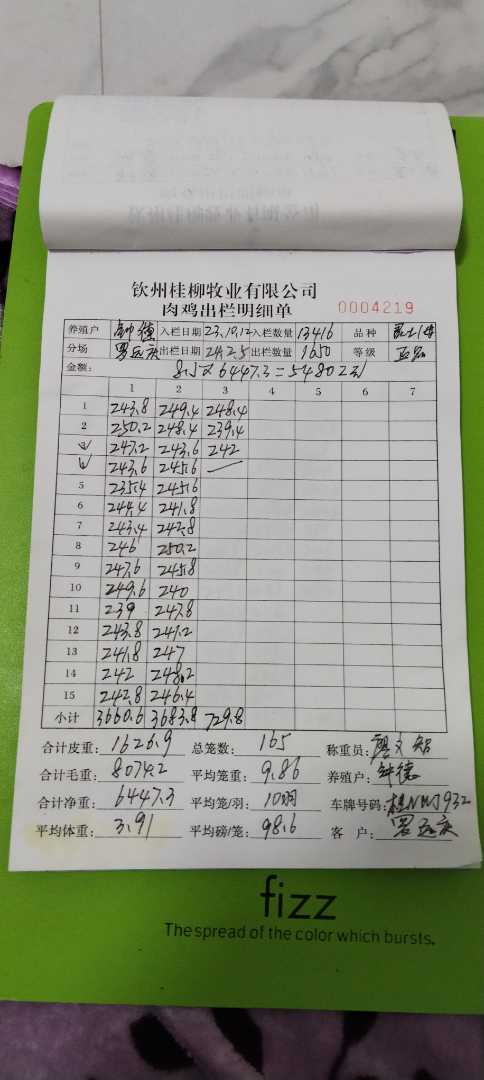 钦州桂柳牧业有限公司
肉鸡出栏明细单 0004219
养殖户 钟德 入栏日期 23.10.12 入栏数量 13416 品种
分场 罗远庆 出栏日期 24.2.5 出栏数量 1650 等级
金额: 8.5 x 6447.3 = 54802元
1 2 3 4 5 6 7
1 243.8 249.4 248.4
2 250.2 248.4 239.4
247.2 243.6 242
243.6 245.6 —
5 235.4 245.6
6 244.4 241.8
7 243.4 242.8
8 246 250.2
9 247.6 245.8
10 249.6 240
11 239 247.8
12 243.8 241.2
13 241.8 247
14 242 248.2
15 242.8 246.4
小计 3660.6 3683.8 729.8
合计皮重: 1626.9 总笼数: 165 称重员:
合计毛重: 8074.2 平均笼重: 9.86 养殖户: 钟德
合计净重: 6447.3 平均笼/羽: 10羽 车牌号码: 桂NWJ932
平均体重: 3.91 平均磅/笼: 98.6 客 户: 罗远庆
fizz
The spread of the color which bursts.